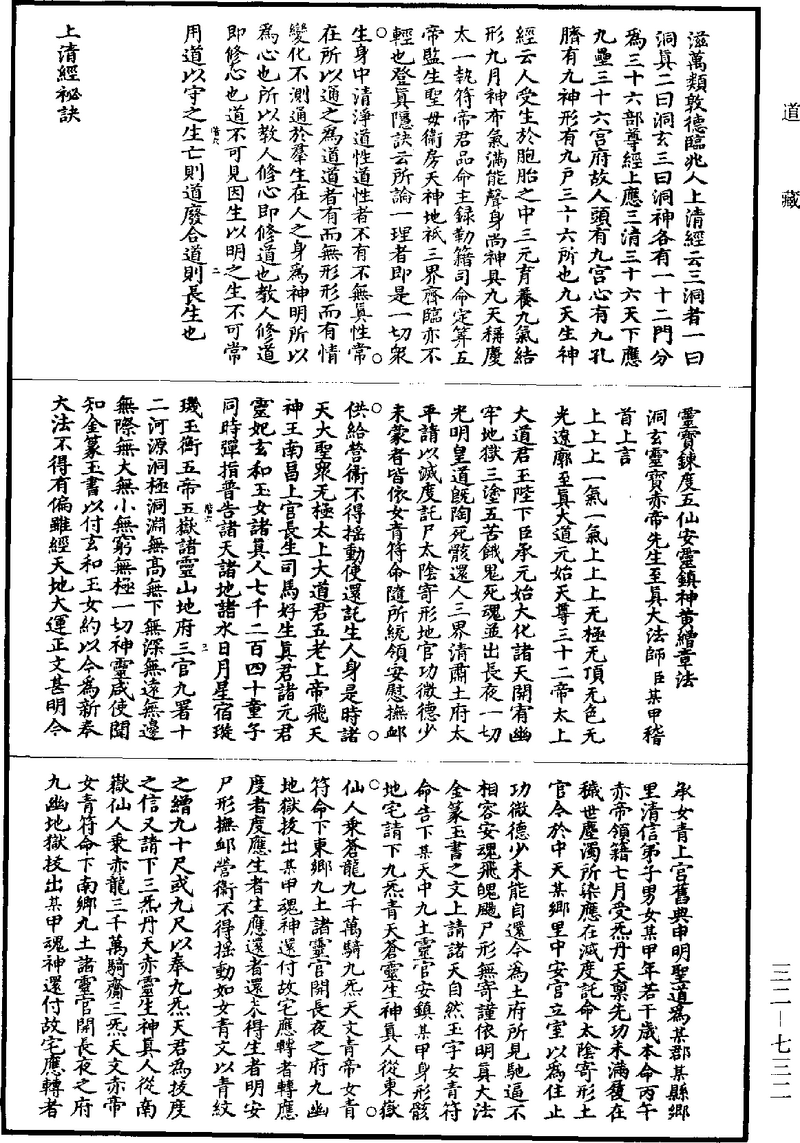 道藏
滋萬類敦德臨兆人上清經云三洞者一曰
洞眞二曰洞玄三曰洞神各有一十二門分
爲三十六部尊經上應三清三十六天下應
九壘三十六宫府故人頭有九宫心有九孔
臍有九神形有九戸三十六所也九天生神
經云人受生於胞胎之中三元育養九氣結
形九月神布氣滿能聲身尚神具九天稱慶
太一執符帝君品命主録勒籍司命定算五
帝監生聖母衞房天神地祇三界齊臨亦不
輕也登眞隱訣云所論一理者即是一切衆
生身中清淨道性道性者不有不無眞性常
在所以通之爲道道者有而無形形而有情
變化不測通於羣生在人之身爲神明所以
爲心也所以教人修心即修道也教人修道
即修心也道不可見因生以明之生不可常
用道以守之生亡則道廢合道則長生也
上清經祕訣
靈寶鍊度五仙安靈鎮神黄繒章法
洞玄靈寶赤帝先生至眞大法師臣某甲稽
首上言
上上上一氣一氣上上上无極无頂无色无
光遼廓至眞大道元始天尊三十二帝太上
大道君王陛下臣承元始大化諸天開宥幽
牢地獄三塗五苦餓鬼死魂並出長夜一切
光明皇道旣陶死骸還人三界清肅土府太
平請以滅度託尸太陰寄形地官功微德少
未蒙者皆依女青符命隨所統領安慰撫䘏
供給營衞不得揺動使還託生人身是時諸
天大聖衆无極太上大道君五老上帝飛天
神王南昌上官長生司馬好生眞君諸元君
靈妃玄和玉女諸眞人七千二百四十童子
同時彈指普告諸天諸地諸水日月星宿璇
璣玉衡五帝五嶽諸靈山地府三官九署十
二河源洞極洞淵無高無下無深無遠無邊
無際無大無小無窮無極一切神靈咸使聞
知金篆玉書以付玄和玉女約以今爲新奉
大法不得有偏雖經天地大運正文甚明今
承女青上官舊典申明聖道爲某郡某縣鄉
里清信弟子男女某甲年若干歲本命丙午
赤帝領籍七月受炁丹天禀先功未滿復在
穢世塵濁所染應在滅度託命太陰寄形土
官令於中天某鄉里中安官立室以為住止
功微德少未能自還今為土府所見馳逼不
相容安魂飛魄颺尸形無寄謹依明眞大法
金篆玉書之文上請諸天自然玉字女青符
命告下某天中九土靈官安鎮某甲身形骸
地宅請下九炁青天蒼靈生神眞人從東嶽
仙人乘蒼龍九千萬騎九炁天文青帝女青
符命下東鄉九土諸靈官開長夜之府九幽
地獄拔出某甲魂神還付故宅應轉者轉應
度者度應生者生應還者還未得生者明安
尸形撫䘏營衞不得揺動如女青文以青紋
之繒九十尺或九尺以奉九炁天君爲拔度
之信又請下三炁丹天赤靈生神眞人從南
嶽仙人乘赤龍三千萬騎齎三炁天文赤帝
女青符命下南鄉九土諸靈官開長夜之府
九幽地獄拔出某甲魂神還付故宅應轉者
三二—七三二